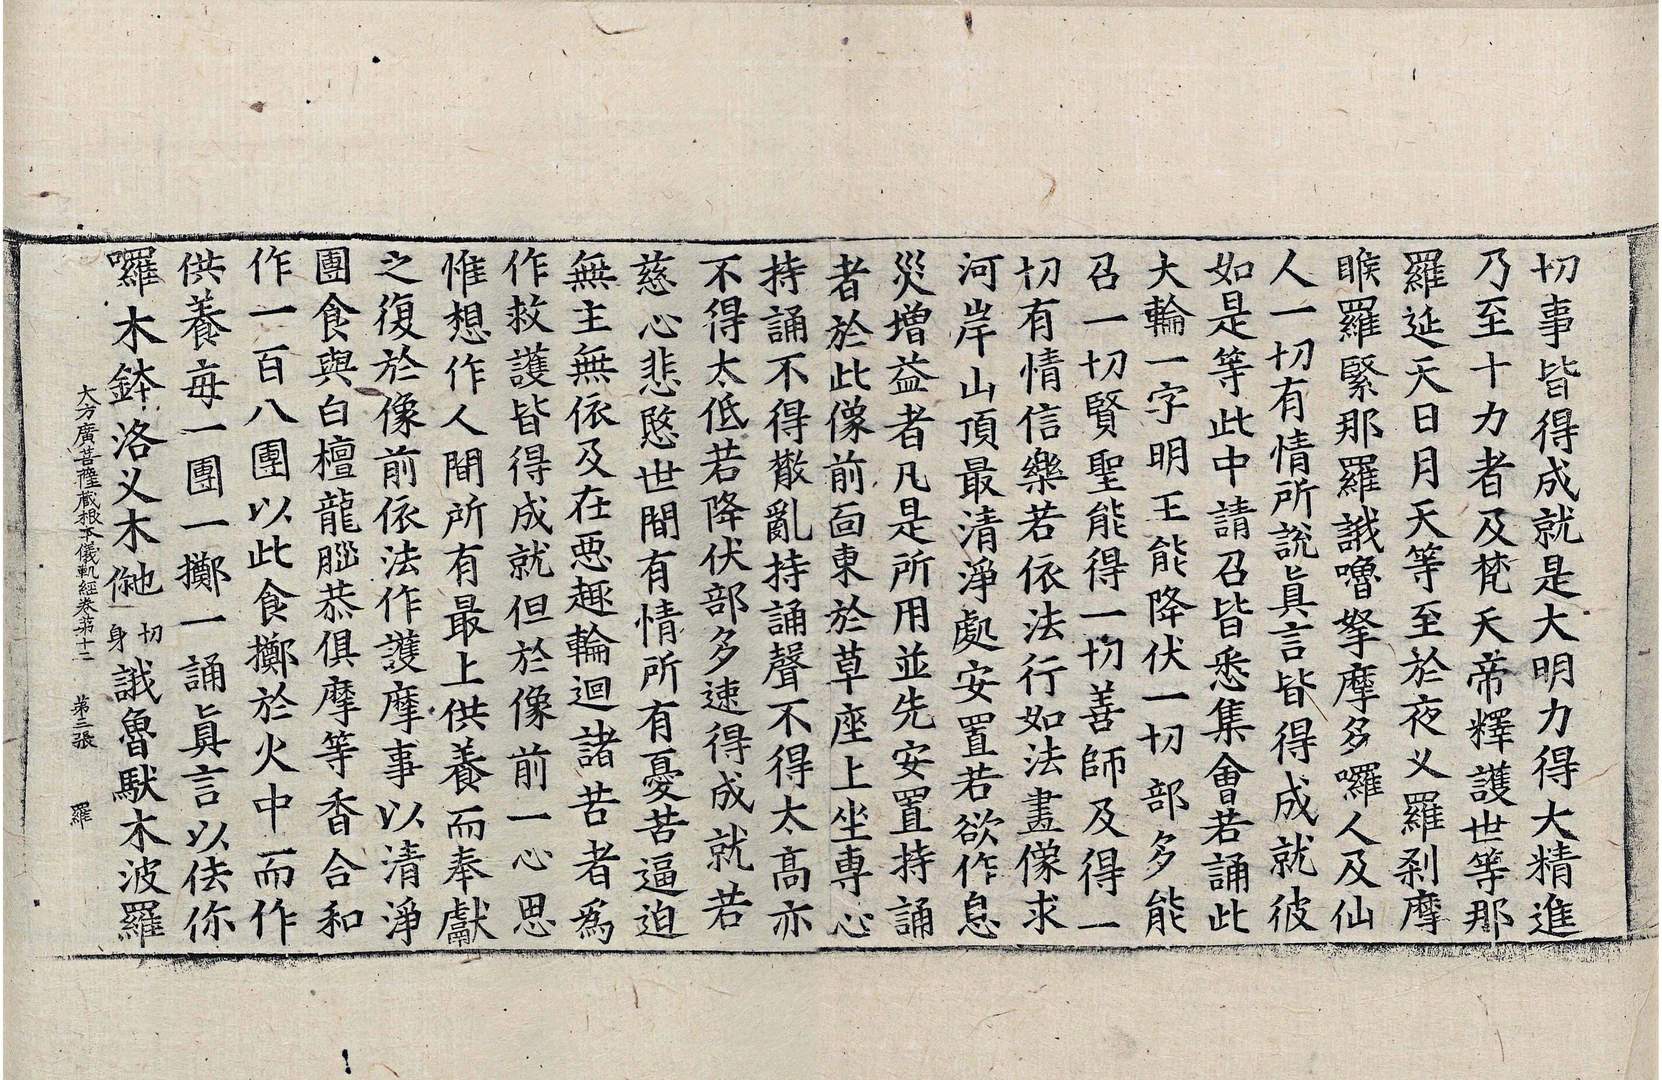 切事皆得成就是大明力得大精進
乃至十力者及梵天帝釋護世等那
羅延天日月天等至於夜叉羅剎摩
睺羅緊那羅誐嚕拏摩多囉人及仙
人一切有情所說眞言皆得成就彼
如是等此中請召皆悉集會若誦此
大輪一字明王能降伏一切部多能
召一切賢聖能得一切善師及得一
切有情信樂若依法行如法畫像求
河岸山頂最清淨處安置若欲作息
災增益者凡是所用並先安置持誦
者於此像前面東於草座上坐專心
持誦不得撒亂持誦聲不得太高亦
不得太低若降伏部多速得成就若
慈心悲愍世間有情所有憂苦逼迫
無主無依及在惡趣輪迴諸苦者爲
作救護皆得成就但於像前一心思
惟想作人間所有最上供養而奉獻
之復於像前依法作護摩事以清淨
團食與白檀龍腦恭俱摩等香合和
作一百八團以此食擲於火中而作
供養每一團一擲一誦眞言以佉你
囉木鉢洛叉木他切身誐魯馱木波羅
大方廣菩薩藏根本儀軌經卷第十二 第三張 羅